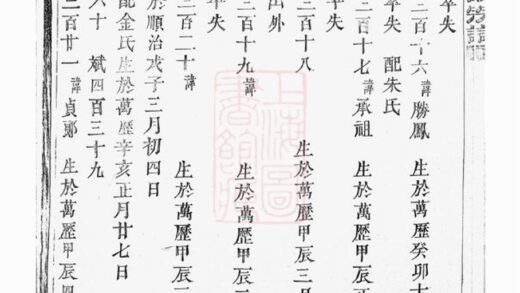 卒失
三百十六 諱勝鳳 生於萬歷癸卯
卒失 配朱氏
三百十七 諱承祖 生於萬歷甲辰
卒失
三百十八 生於萬歷甲辰三月
出外
三百十九 諱 生於萬歷甲辰
卒失
三百二十 諱 生於萬歷甲辰
於順治戊子三月初四日
配金氏生於萬歷辛亥正月廿七日
六十 斌四百三十九
三百廿一 諱貞郷 生於萬歷甲辰四
上海圖書館藏